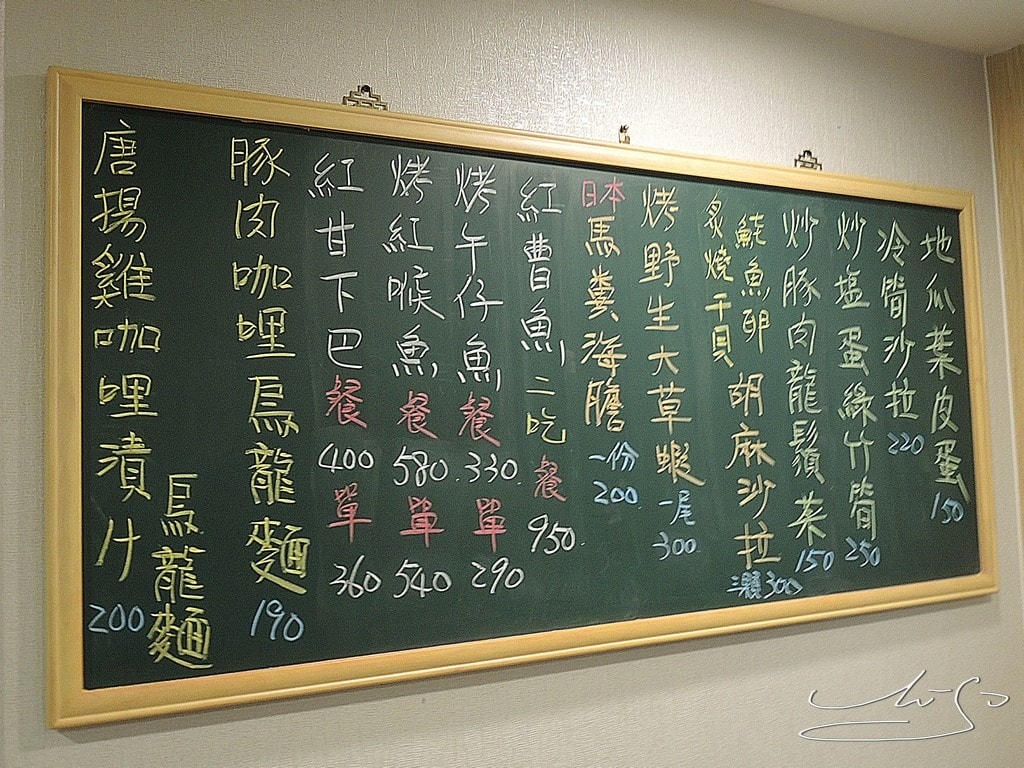 地瓜葉皮蛋 150
冷筍沙拉 220
炒塩蛋綠竹筍 250
炒豚肉龍鬚菜 150
魷魚卵 胡麻沙拉
炙燒干貝 三顆300
烤野生大草蝦 一尾 300
日本馬糞海膽 一份 200
紅曹魚,二吃 餐 950.
烤午仔魚,餐 330. 單 290
烤紅喉魚,餐 580. 單 540
紅甘下巴 餐 400 單 360
豚肉咖哩烏龍麵 190
唐揚雞咖哩漬汁 烏龍麵 200